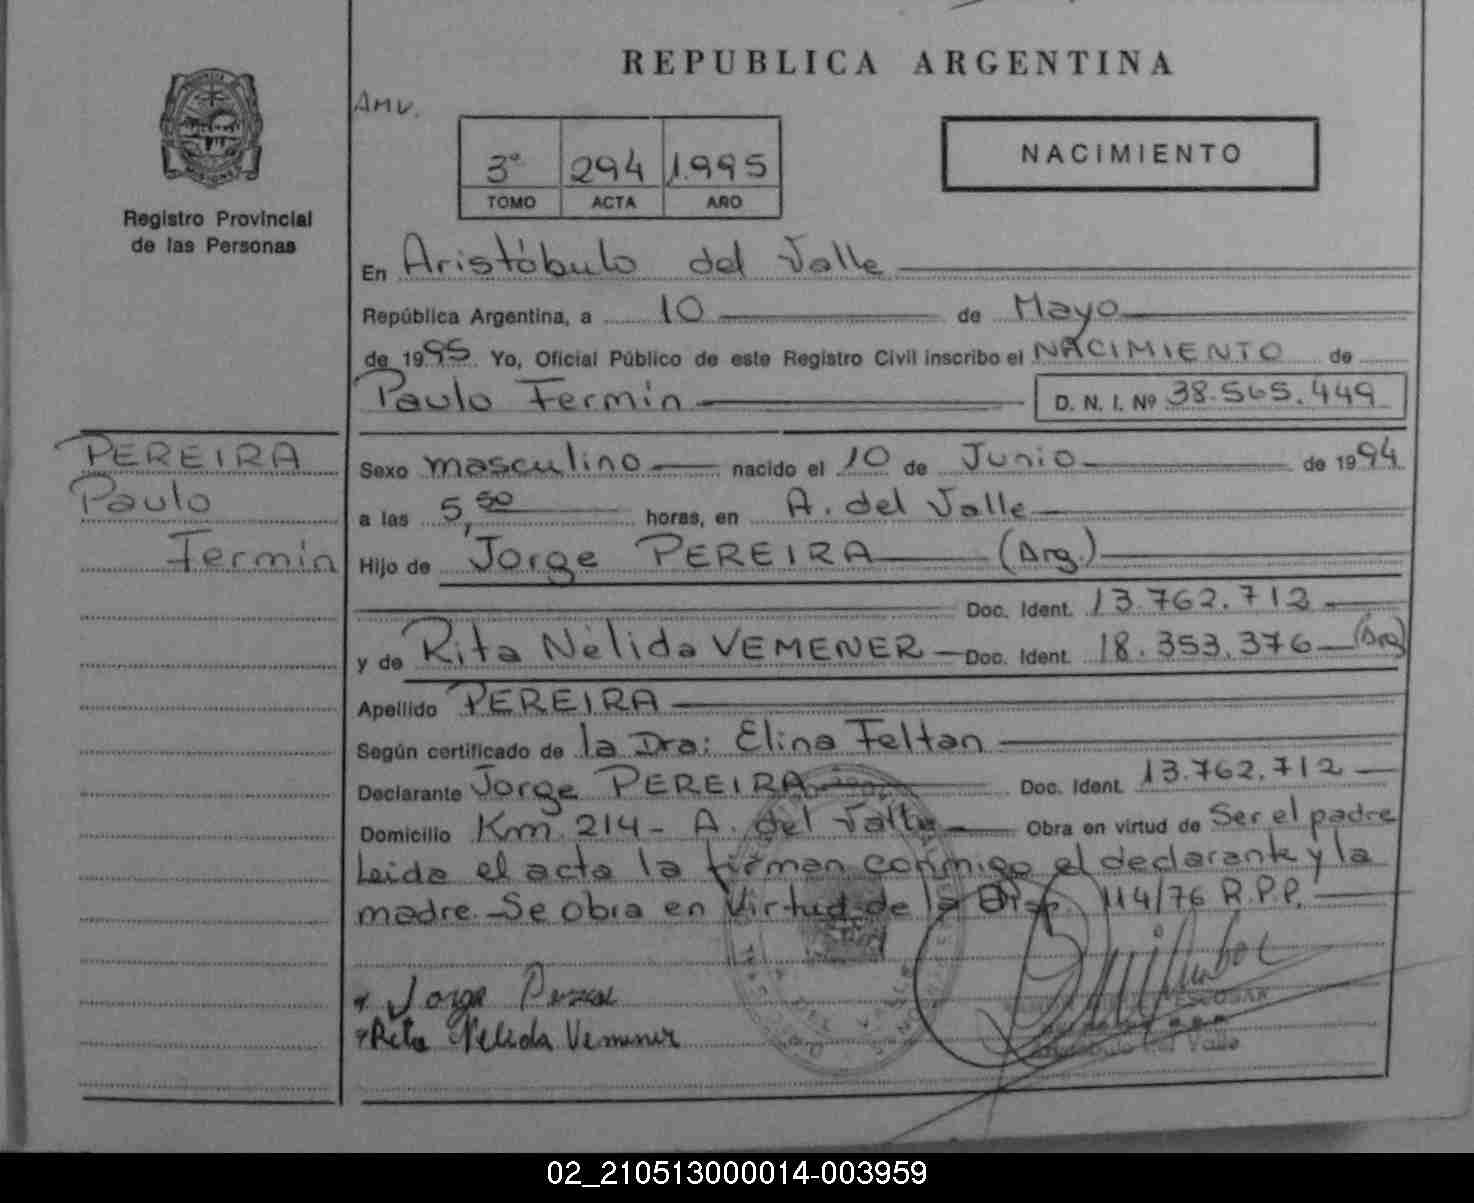 REPUBLICA ARGENTINA
AMV.
3° 294 1.995
TOMO ACTA AÑO
NACIMIENTO
Registro Provincial
de las Personas
En Aristóbulo del Valle
República Argentina, a 10 de Mayo
de 1995 Yo, Oficial Público de este Registro Civil inscribo el NACIMIENTO de
Paulo Fermín D. N. I. Nº 38.565.449
PEREIRA
Paulo
Fermín
Sexo masculino nacido el 10 de Junio de 1994
a las 5,50 horas, en A. del Valle
Hijo de Jorge PEREIRA (Arg.)
Doc. Ident. 13.762.712
y de Rita Nélida VEMENER Doc. Ident. 18.353.376 (Arg)
Apellido PEREIRA
Según certificado de la Dra: Elina Feltan
Declarante Jorge PEREIRA Doc. Ident. 13.762.712
Domicilio Km 214 - A. del Valle Obra en virtud de Ser el padre
Leida el acta la firman conmigo el declarante y la
madre. Se obra en virtud de la Disp. 114/76 R.P.P.
Jorge
Rita Nelida Vemener
ESCOBAR
del Valle
02_210513000014-003959